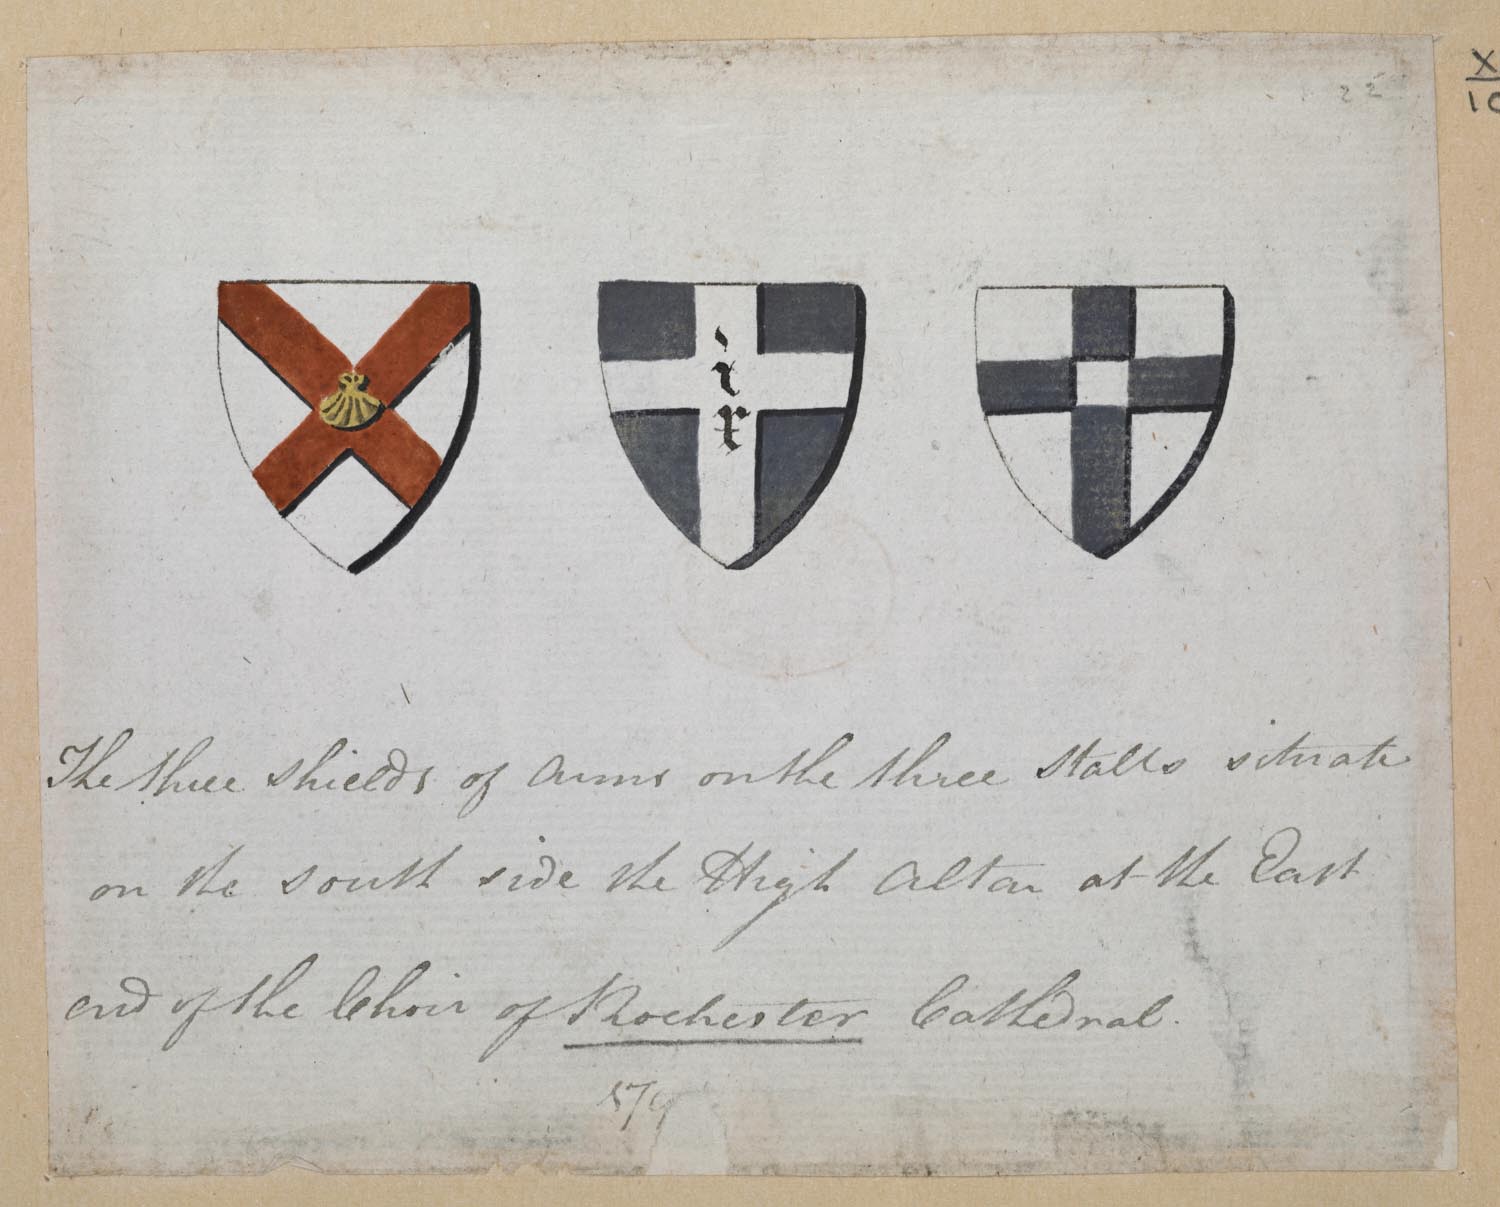 22
X
10
i x
The three shields of Arms on the three Stalls situate
on the south side the High Altar at the East
end of the Choir of Rochester Cathedral.